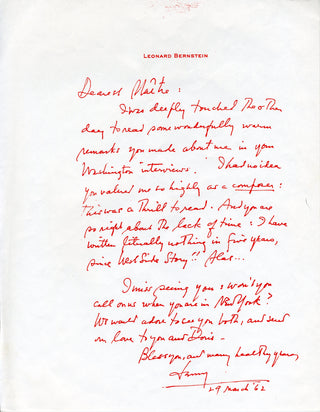 LEONARD BERNSTEIN
Dearest Maître :
I was deeply touched the other
day to read some wonderfully warm
remarks you made about me in your
Washington "interviews". I had no idea
you valued me so highly as a composer:
this was a thrill to read. And you are
so right about the lack of time : I have
written literally nothing in five years,
since West Side Story!! Alas...
I miss seeing you : won't you
call on us when you are in New York?
We would adore to see you both, and send
our love to you and Doris.
Bless you, and many healthy years,
Lenny
29 March '62